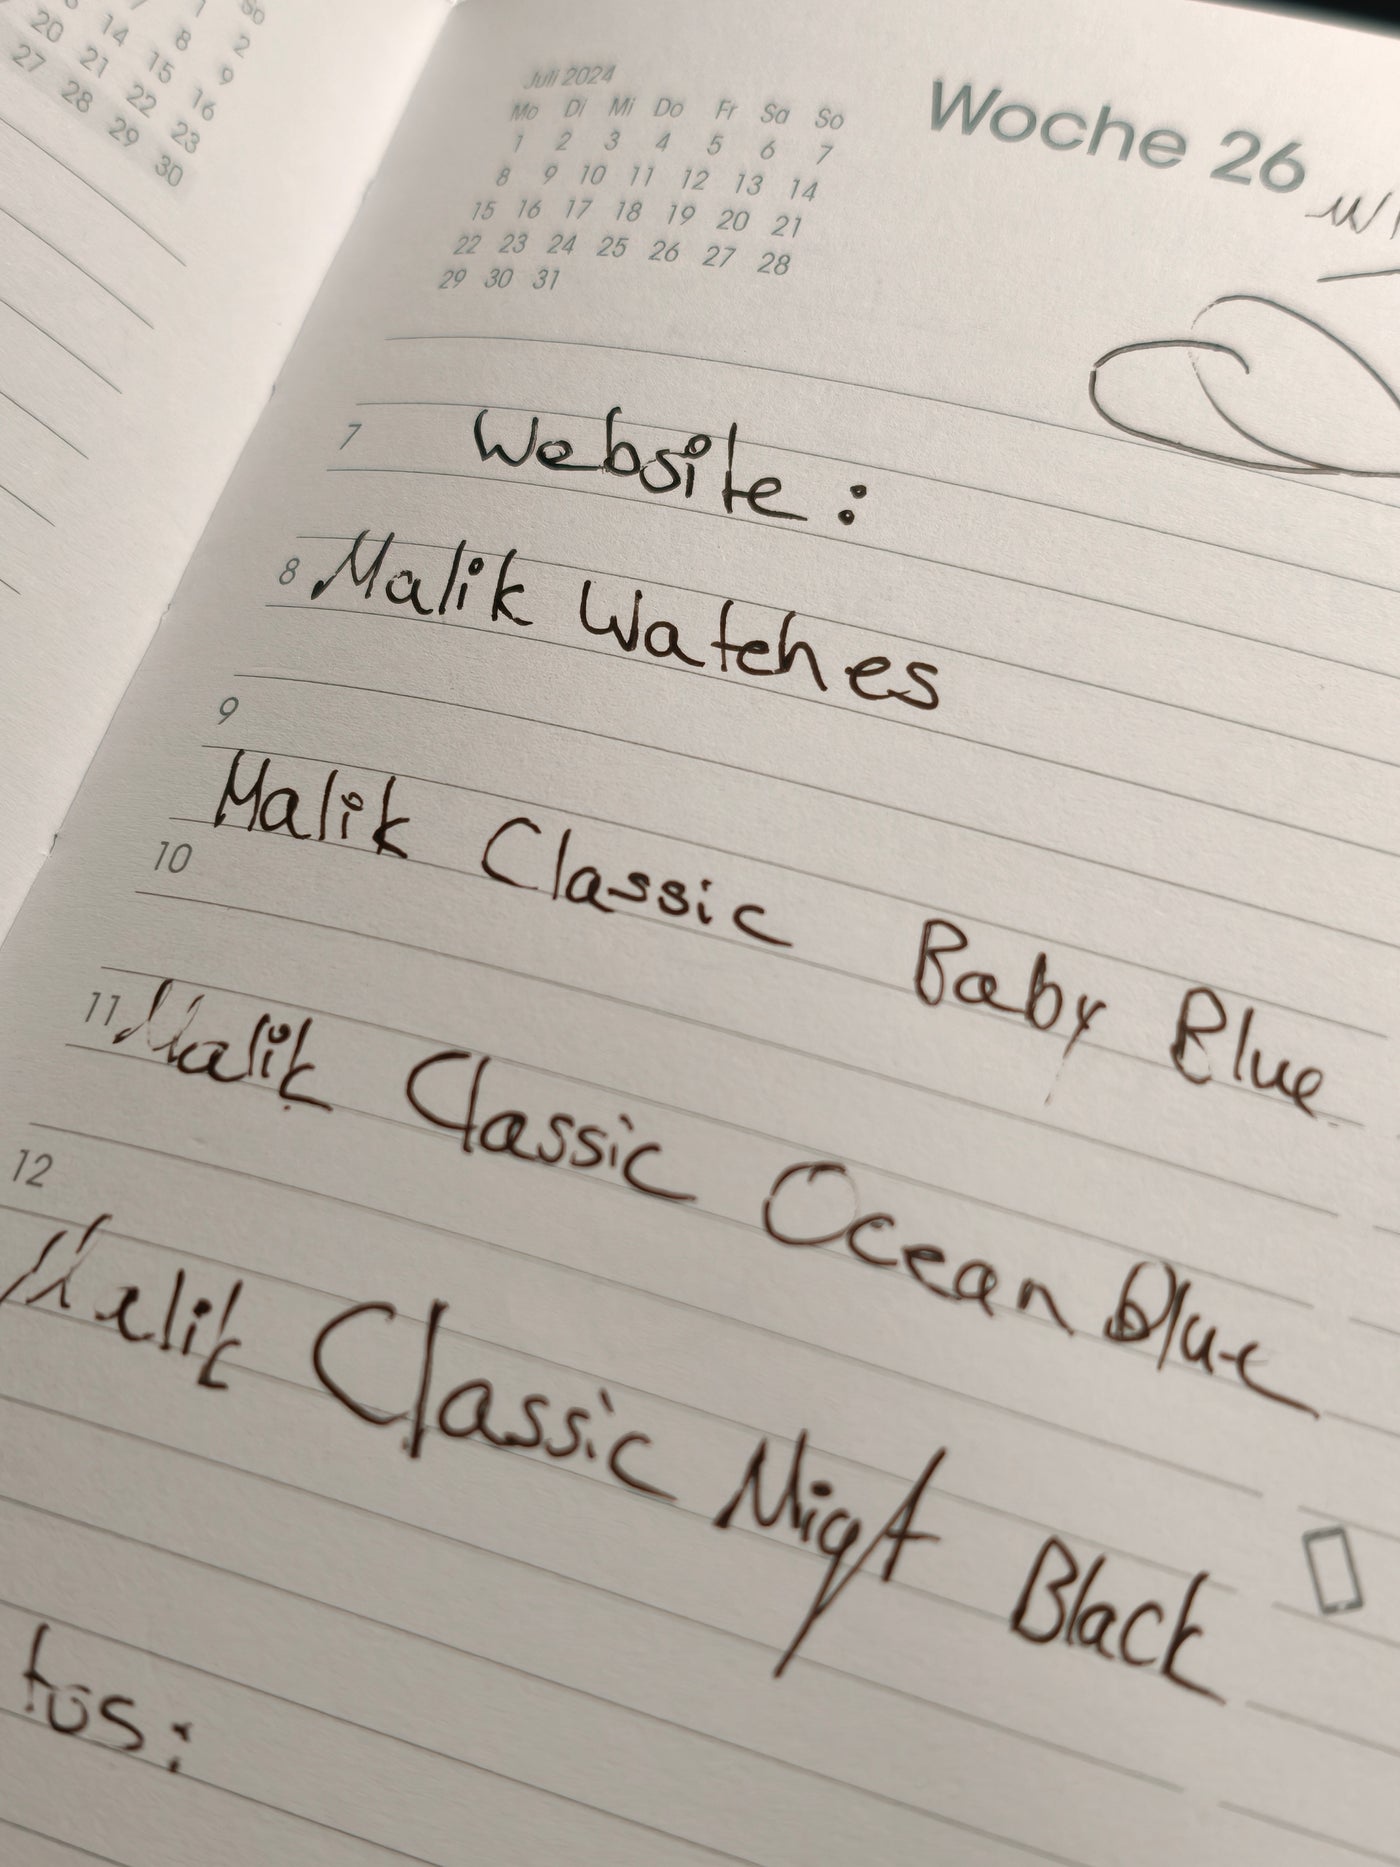 1 So
14 8 2
20 21 15 9
27 28 22 16
29 23
30
Juli 2024
Mo Di Mi Do Fr Sa So
1 2 3 4 5 6 7
8 9 10 11 12 13 14
15 16 17 18 19 20 21
22 23 24 25 26 27 28
29 30 31
Woche 26
7 Website:
8 Malik Watches
9
Malik Classic Baby Blue
10
11 Malik Classic Ocean Blue
12
Malik Classic Nigt Black
tos: